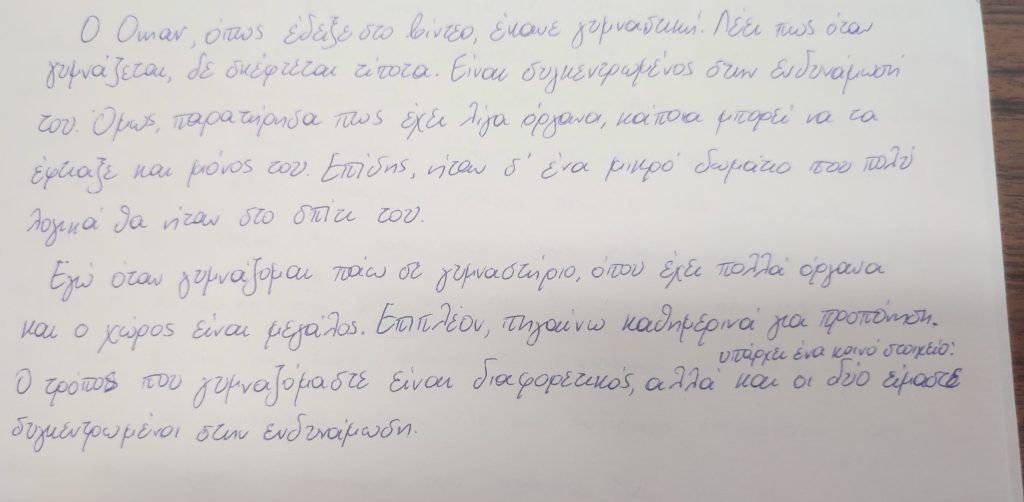 Ο Omar, όπως έδειξε στο βίντεο, έκανε γυμναστική. Λέει πως όταν
γυμνάζεται, δε σκέφτεται τίποτα. Είναι συγκεντρωμένος στην ενδυνάμωσή
του. Όμως, παρατήρησα πως έχει λίγα όργανα, κάποια μπορεί να τα
έφτιαξε και μόνος του. Επίσης, ήταν σ' ένα μικρό δωμάτιο που πολύ
λογικά θα ήταν στο σπίτι του.
Εγώ όταν γυμνάζομαι πάω σε γυμναστήριο, όπου έχει πολλά όργανα
και ο χώρος είναι μεγάλος. Επιπλέον, πηγαίνω καθημερινά για προπόνηση.
υπάρχει ένα κοινό στοιχείο:
Ο τρόπος που γυμναζόμαστε είναι διαφορετικός, αλλά και οι δύο είμαστε
συγκεντρωμένοι στην ενδυνάμωση.